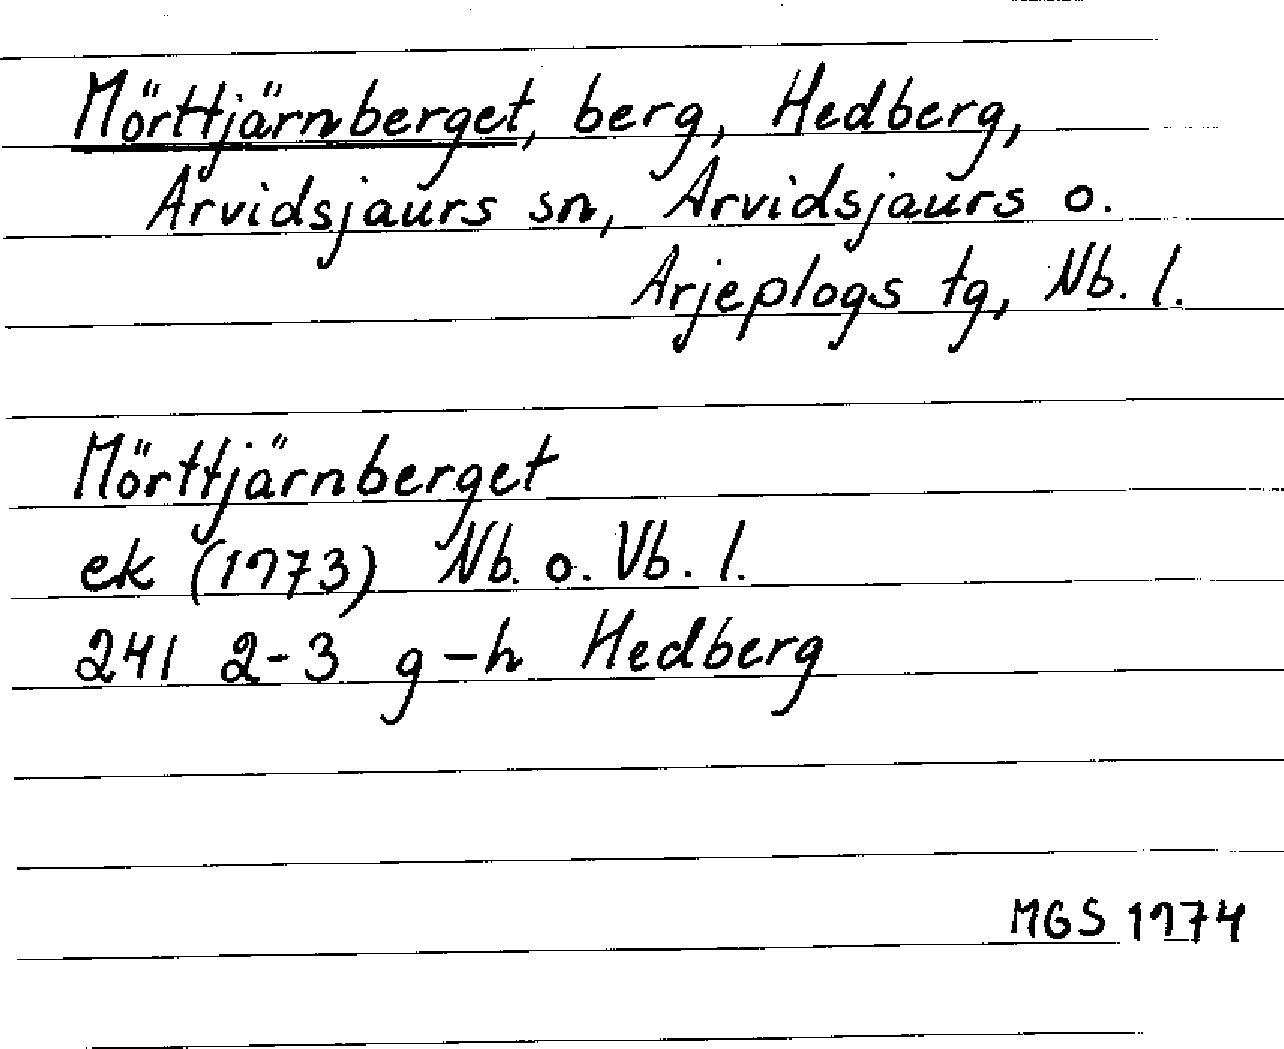 Mörttjärnberget, berg, Hedberg,
Arvidsjaurs sn, Arvidsjaurs o.
Arjeplogs tg, Nb. l.
Mörttjärnberget
ek (1973) Nb. o. Vb. l.
241 2-3 g-h Hedberg
MGS 1974